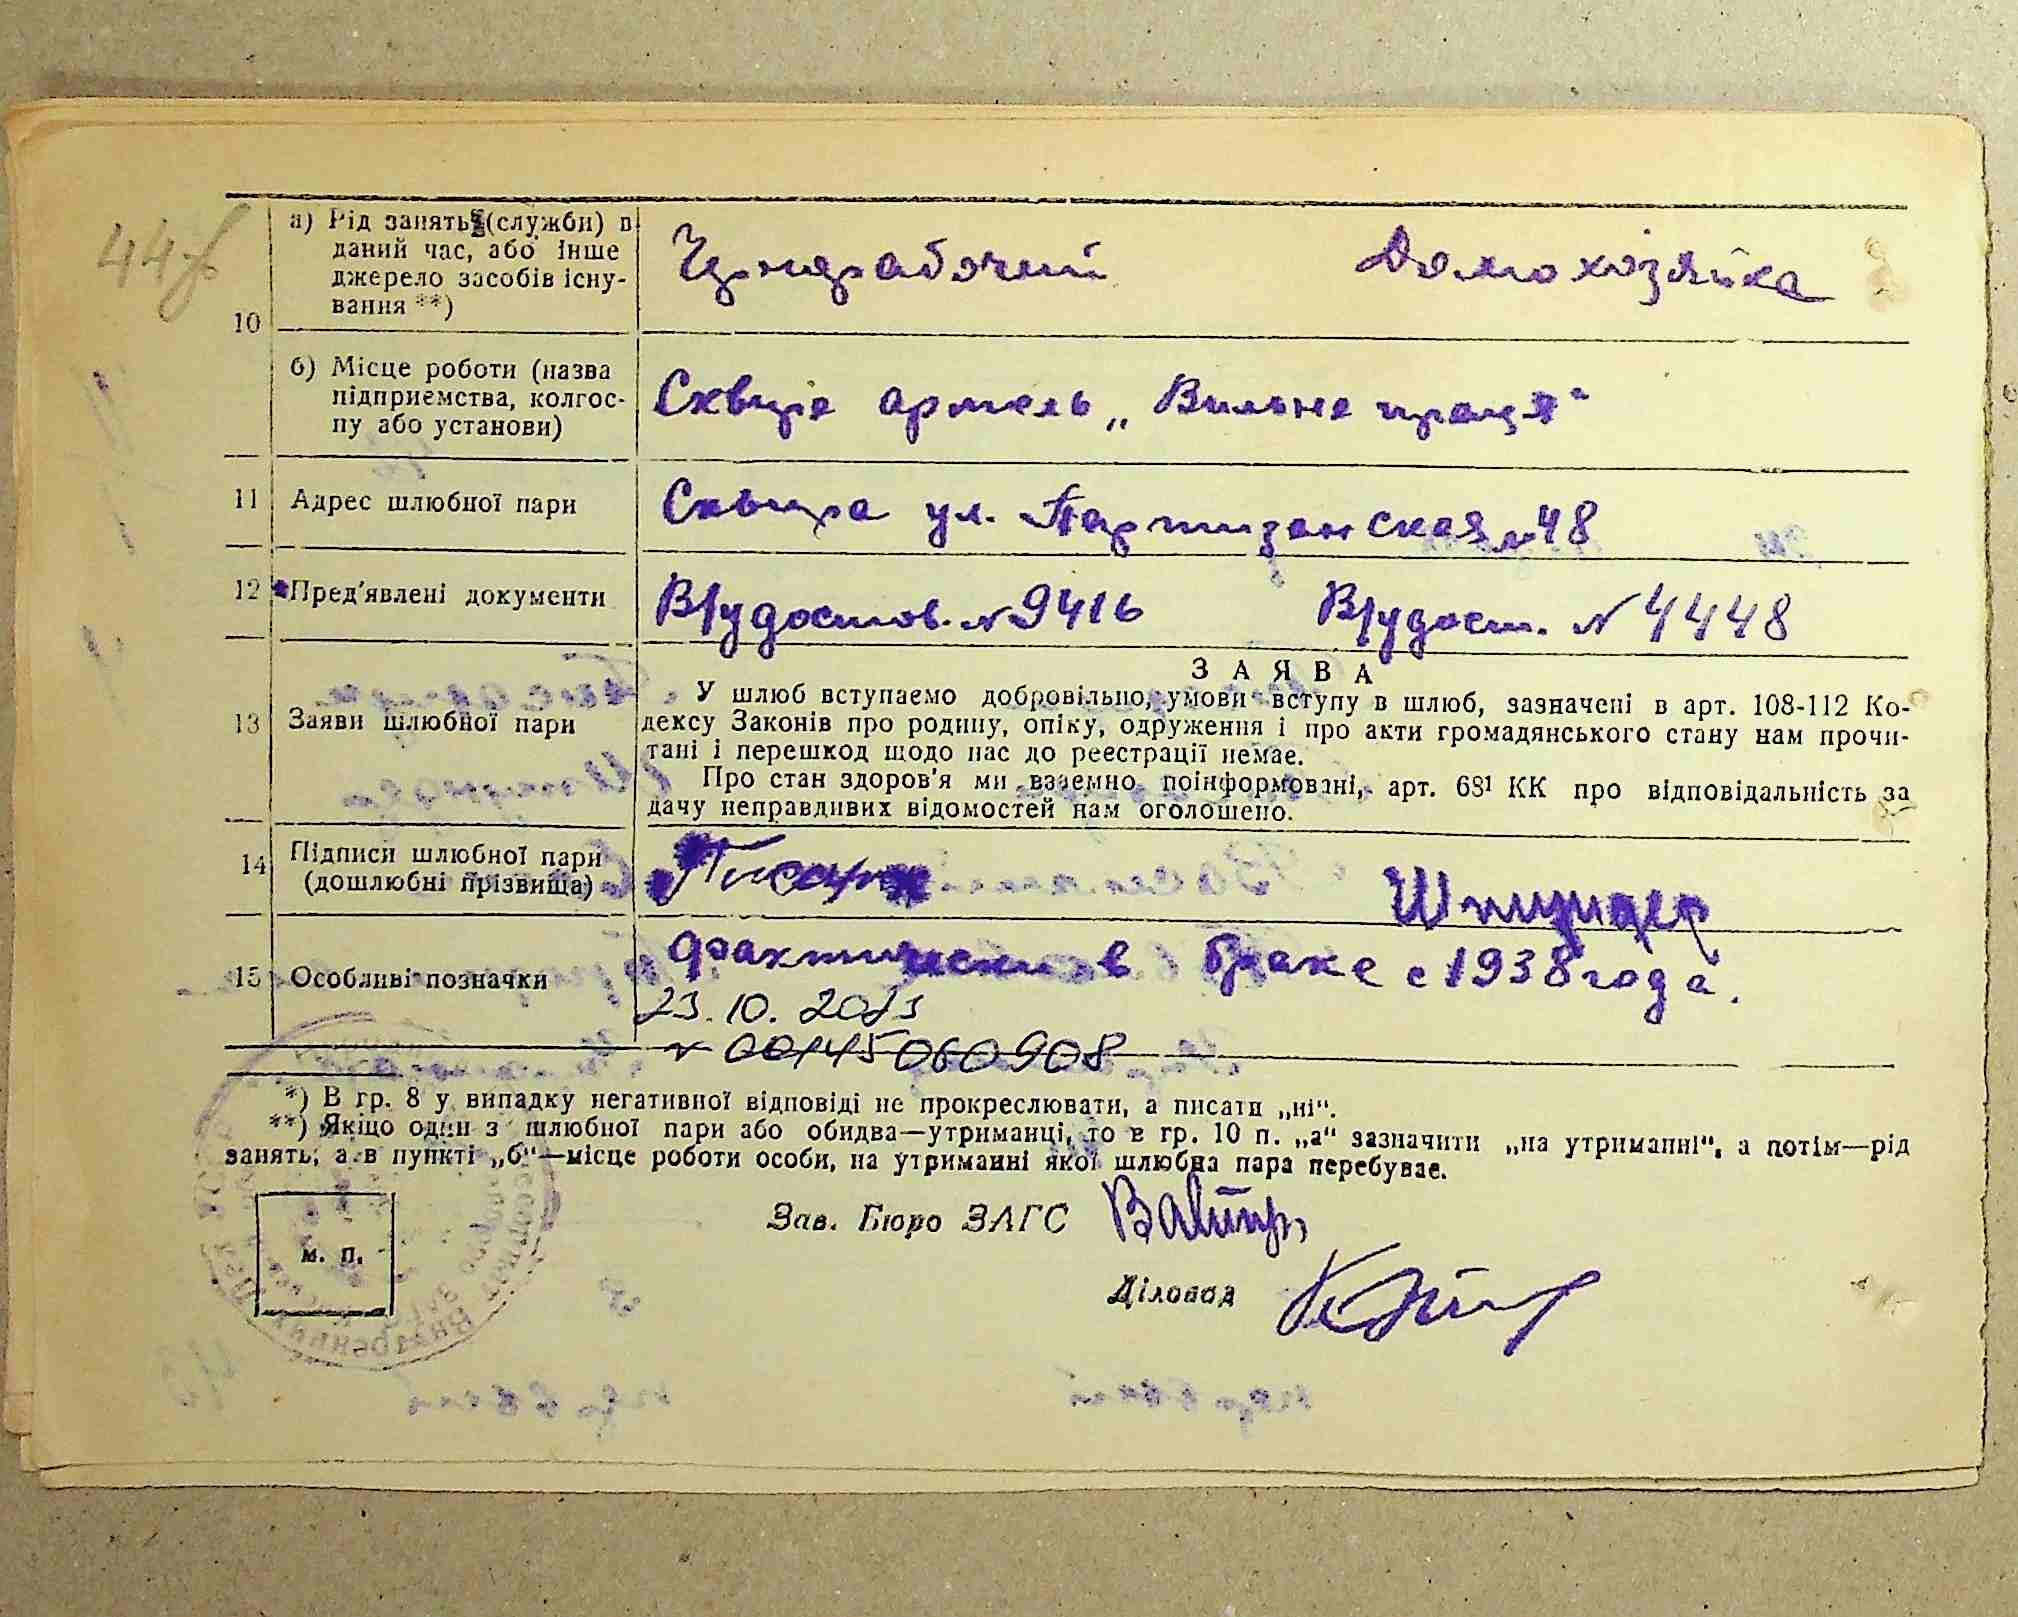 44
а) Рід занять (служби) в
даний час, або інше
джерело засобів існу-
вання **)
Чернорабочий
Домохозяйка
10
б) Місце роботи (назва
підприємства, колгос-
пу або установи)
Сквира артель „Вильна праця"
11 Адрес шлюбної пари
Сквира ул. Партизанская №48
12 Пред'явлені документи
В/удостов. №9416
В/удост. №4448
13 Заяви шлюбної пари
ЗАЯВА
У шлюб вступаємо добровільно, умови вступу в шлюб, зазначені в арт. 108-112 Ко-
дексу Законів про родину, опіку, одруження і про акти громадянського стану нам прочи-
тані і перешкод щодо нас до реестрації немає.
Про стан здоров'я ми взаємно поінформовані, арт. 68¹ КК про відповідальність за
дачу неправдивих відомостей нам оголошено.
14 Підписи шлюбної пари
(дошлюбні прізвища)
Шпундер
15 Особливі позначки
Фактически в браке с 1938 года.
23.10.2013
№ 00145060908
*) В гр. 8 у випадку негативної відповіді не прокреслювати, а писати „ні".
**) Якщо один з шлюбної пари або обидва—утриманці, то в гр. 10 п. „а" зазначити „на утриманні", а потім—рід
занять, а в пункті „б"—місце роботи особи, на утриманні якої шлюбна пара перебуває.
м. п.
Зав. Бюро ЗАГС
Діловод